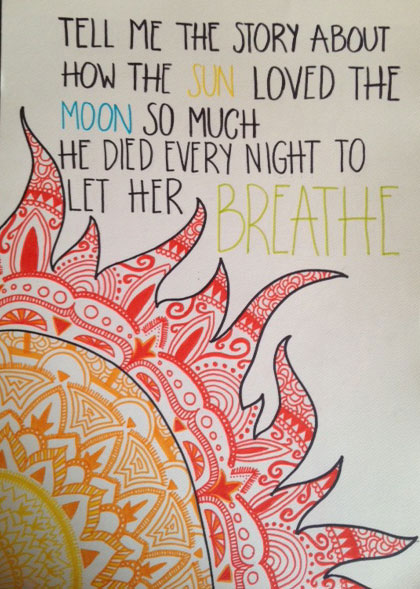 TELL ME THE STORY ABOUT
HOW THE SUN LOVED THE
MOON SO MUCH
HE DIED EVERY NIGHT TO
LET HER BREATHE